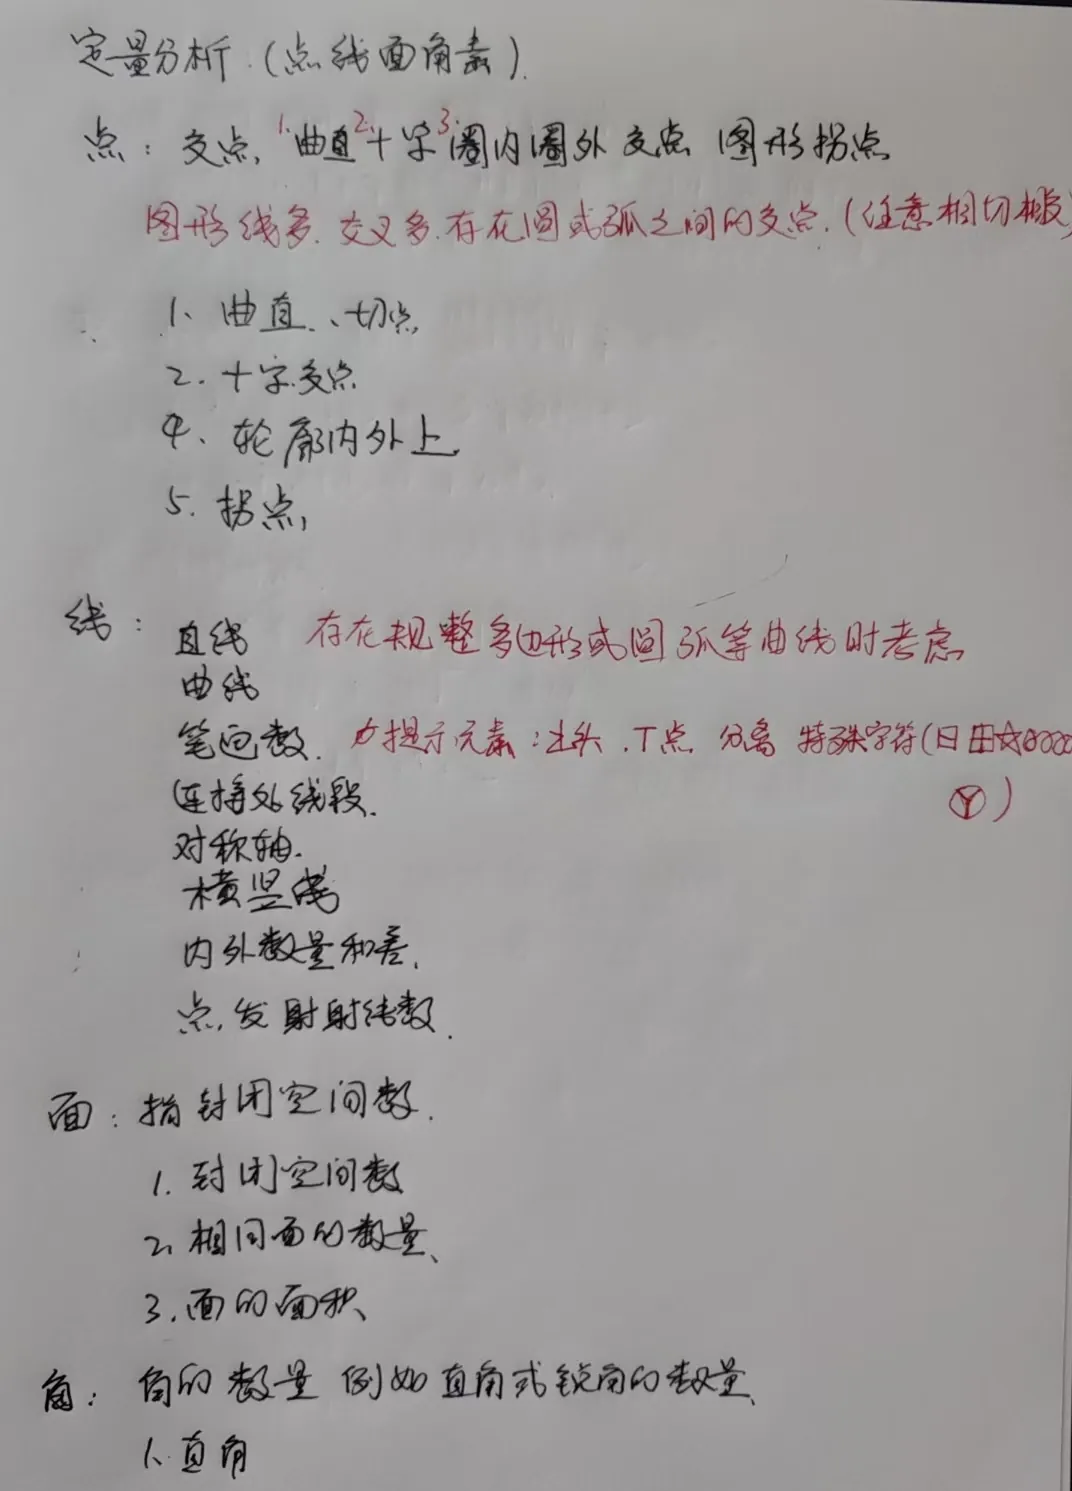 定量分析.(点线面角素).
点: 交点, 1.曲直 2.十字 3.圈内圈外 交点 图形拐点
图形线多. 交叉多. 存在圆或弧之间的交点. (任意相切
1、曲直、切点
2. 十字交点
4、轮廓内外上
5. 拐点,
线: 直线 存在规整多边形或圆 弧等曲线时考虑
曲线
笔画数. 提示元素: 出头 .T点 分离 特殊字符(日田☆
Y)
连接处线段.
对称轴.
横竖线
内外数量和差.
点,发射射线数.
面: 指封闭空间数.
1. 封闭空间数
2、相同面的数量、
3. 面的面积、
角: 角的数量 例如直角或锐角的数量、
1、直角